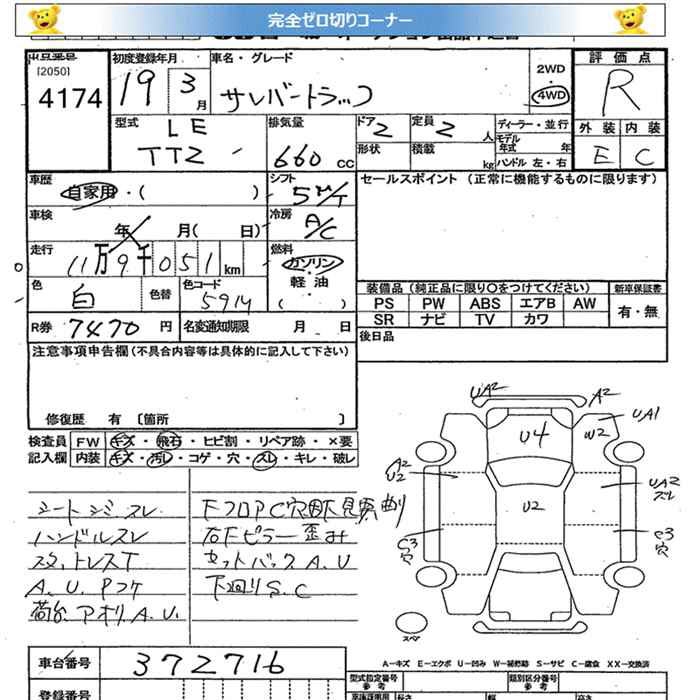 完全ゼロ切りコーナー
[2050]
4174
初度登録年月
19 3月
車名・グレード
サンバートラック
2WD
4WD
評価点
R
型式
LE
TT2
排気量
660 CC
ドア 2
定員 2 人
形状
積載 kg
ディーラー・並行
モデル年式 年
ハンドル 左・右
外装 内装
E C
車歴
自家用・( )
シフト
5M/T
車検
年 月( 日)
冷房
A/C
走行
11万9千051km
燃料
ガソリン・
軽油
( )
色
白
色替
色コード
5914
R券 7470 円
名変通知期限 月 日
セールスポイント (正常に機能するものに限ります)
装備品(純正品に限り○をつけてください)
新車保証書
PS PW ABS エアB AW
有・無
SR ナビ TV カワ
後日品
注意事項申告欄(不具合内容等は具体的に記入して下さい)
修復歴 有 〔箇所 〕
検査員 FW キズ・飛石・ヒビ割・リペア跡・×要
記入欄 内装 キズ・汚れ・コゲ・穴・スレ・キレ・破レ
シートシミスレ
ハンドルスレ
スタットレスT
A.U.Pコケ
荷台.アオリA.U.
右Fピラー歪み
セットバックA.U
下廻りS.C
UA2
A2
UA1
W2
U4
A2
U2
U2
UA2
スレ
C3
穴
C3
穴
スペア
A-キズ E-エクボ U-凹み W-補修跡 S-サビ C-腐食 XX-交換済
車台番号 372716
登録番号
型式指定番号
参考
類別区分番号
参考